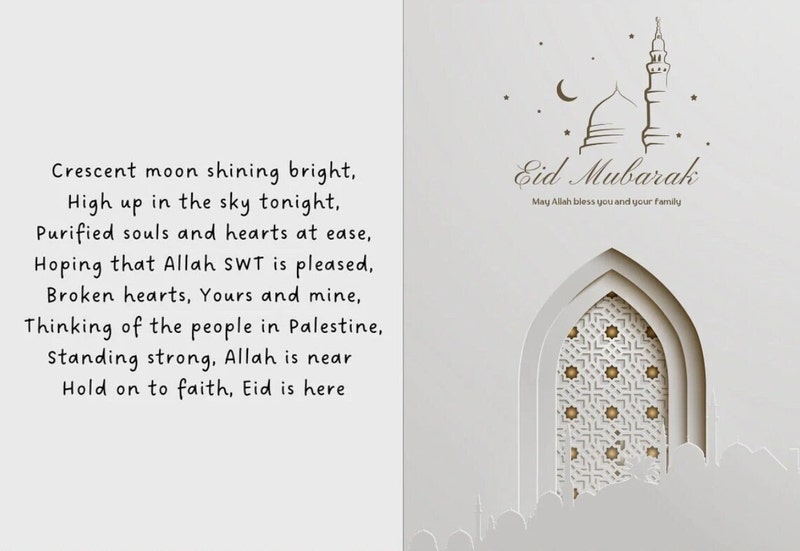 Crescent moon shining bright,
High up in the sky tonight,
Purified souls and hearts at ease,
Hoping that Allah SWT is pleased,
Broken hearts, Yours and mine,
Thinking of the people in Palestine,
Standing strong, Allah is near
Hold on to faith, Eid is here
Eid Mubarak
May Allah bless you and your family